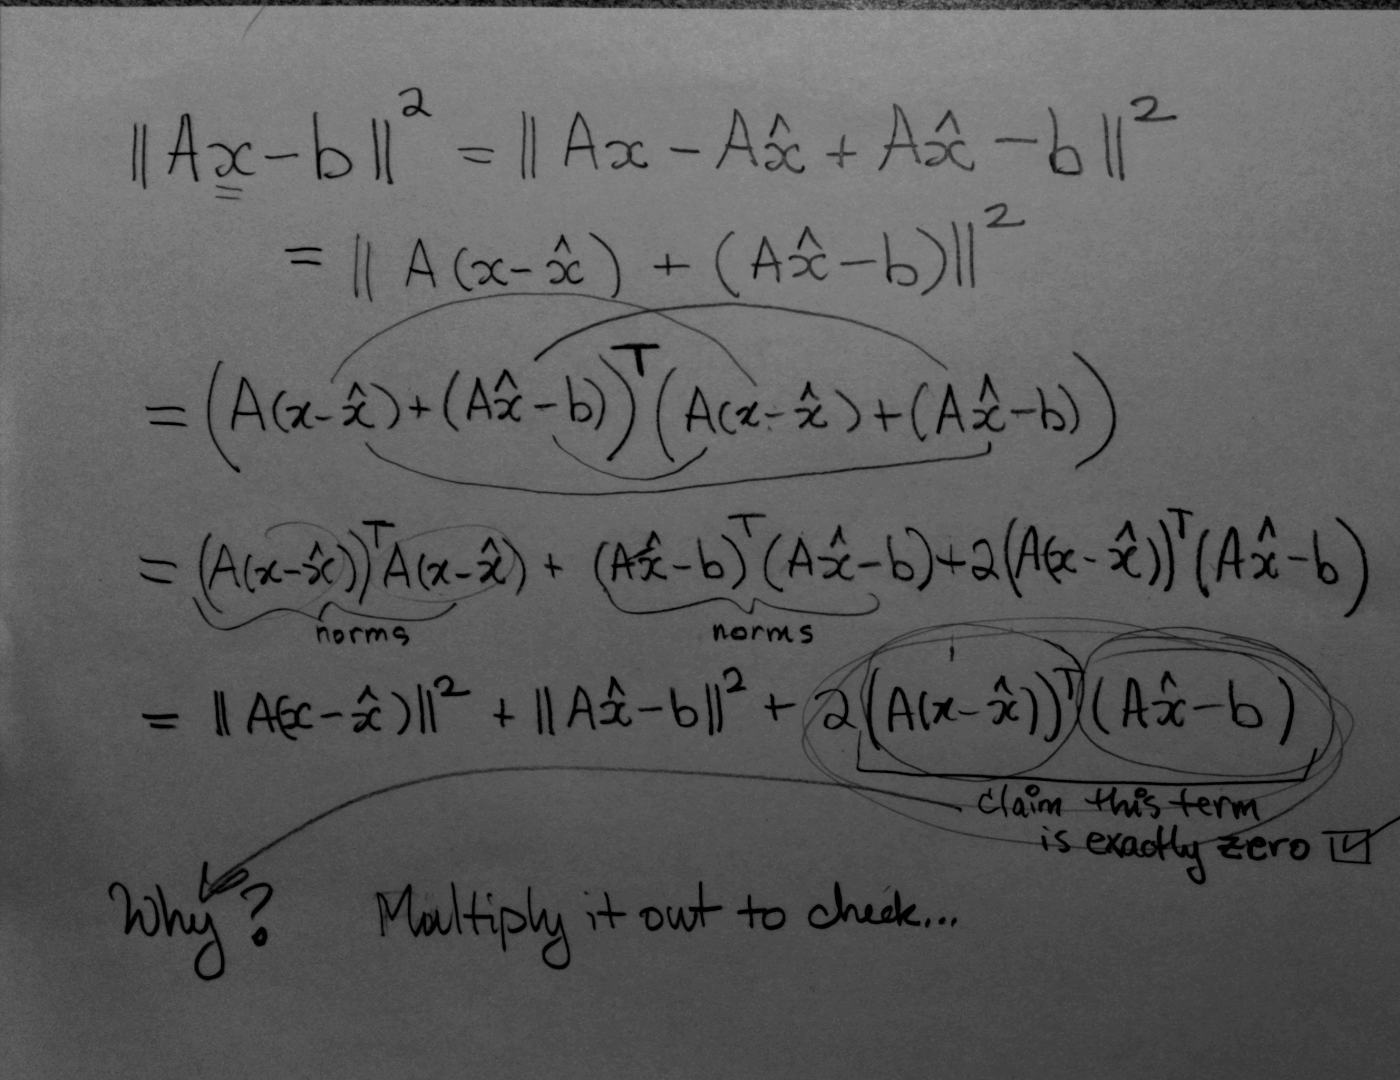 ‖Ax − b‖² = ‖Ax − Ax̂ + Ax̂ − b‖²
= ‖A(x − x̂) + (Ax̂ − b)‖²
= (A(x − x̂) + (Ax̂ − b))ᵀ(A(x − x̂) + (Ax̂ − b))
= (A(x − x̂))ᵀA(x − x̂) + (Ax̂ − b)ᵀ(Ax̂ − b) + 2(A(x − x̂))ᵀ(Ax̂ − b)
norms norms
= ‖A(x − x̂)‖² + ‖Ax̂ − b‖² + 2(A(x − x̂))ᵀ(Ax̂ − b)
claim this term
is exactly zero ☑
Why? Multiply it out to check...